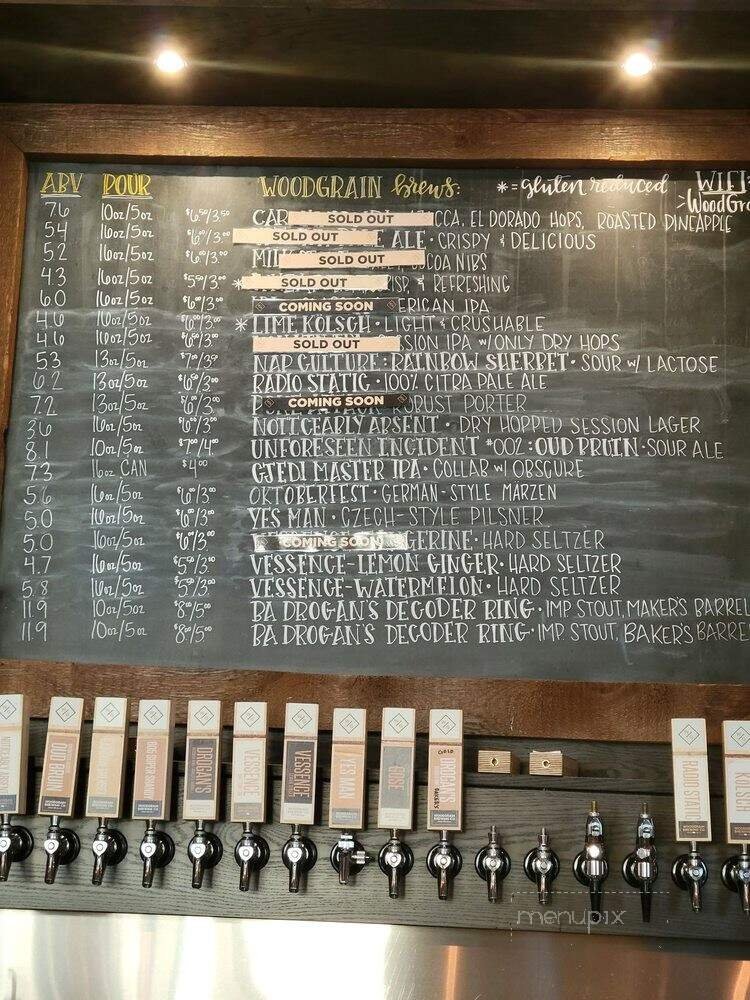 ABV POUR WOODGRAIN brews: *=gluten reduced WIFI:
>WoodGra
7.6 10oz/5oz $6⁵⁰/3.⁵⁰ CAR SOLD OUT CCA, EL DORADO HOPS, ROASTED PINEAPPLE
5.4 16oz/5oz $6⁰⁰/3.⁰⁰ SOLD OUT ALE · CRISPY & DELICIOUS
5.2 16oz/5oz $6.⁰⁰/3.⁰⁰ MILK SOLD OUT COCOA NIBS
4.3 16oz/5oz $5⁵⁰/3⁰⁰ * SOLD OUT CRISP & REFRESHING
6.0 16oz/5oz $6⁰⁰/3.⁰⁰ COMING SOON ERICAN IPA
4.6 16oz/5oz $6⁰⁰/3⁰⁰ * LIME KÖLSCH · LIGHT & CRUSHABLE
4.6 16oz/5oz $6⁰⁰/3⁰⁰ SOLD OUT SSION IPA w/ONLY DRY HOPS
5.3 13oz/5oz NAP CULTURE: RAINBOW SHERBET · SOUR w/ LACTOSE
6.2 13oz/5oz $6⁰⁰/3⁰⁰ RADIO STATIC · 100% CITRA PALE ALE
7.2 13oz/5oz $6⁰⁰/3⁰⁰ COMING SOON ROBUST PORTER
3.6 16oz/5oz $6⁰⁰/3⁰⁰ NOTICEARLY ABSENT · DRY HOPPED SESSION LAGER
8.1 10oz/5oz $7⁰⁰/4⁰⁰ UNFORESEEN INCIDENT #002: OUD BRUIN · SOUR ALE
7.3 16oz CAN $4⁰⁰ GJEDI MASTER IPA · COLLAB w/ OBSCURE
5.6 16oz/5oz $6/3⁰⁰ OKTOBERFEST · GERMAN-STYLE MÄRZEN
5.0 16oz/5oz $6/3⁰⁰ YES MAN · CZECH-STYLE PILSNER
5.0 16oz/5oz $6/3⁰⁰ COMING SOON GERINE · HARD SELTZER
4.7 16oz/5oz $5/3⁰⁰ VESSENCE-LEMON GINGER · HARD SELTZER
5.8 16oz/5oz $5/3⁰⁰ VESSENCE-WATERMELON · HARD SELTZER
11.9 10oz/5oz $8/5⁰⁰ BA DROGAN'S DECODER RING · IMP STOUT, MAKER'S BARREL
11.9 10oz/5oz $8/5⁰⁰ BA DROGAN'S DECODER RING · IMP STOUT, BAKER'S BARRE
OUD BRUIN
DROGAN'S
VESSENCE
VESSENCE
YES MAN
RADIO STATIC
KOLSCH
menupix